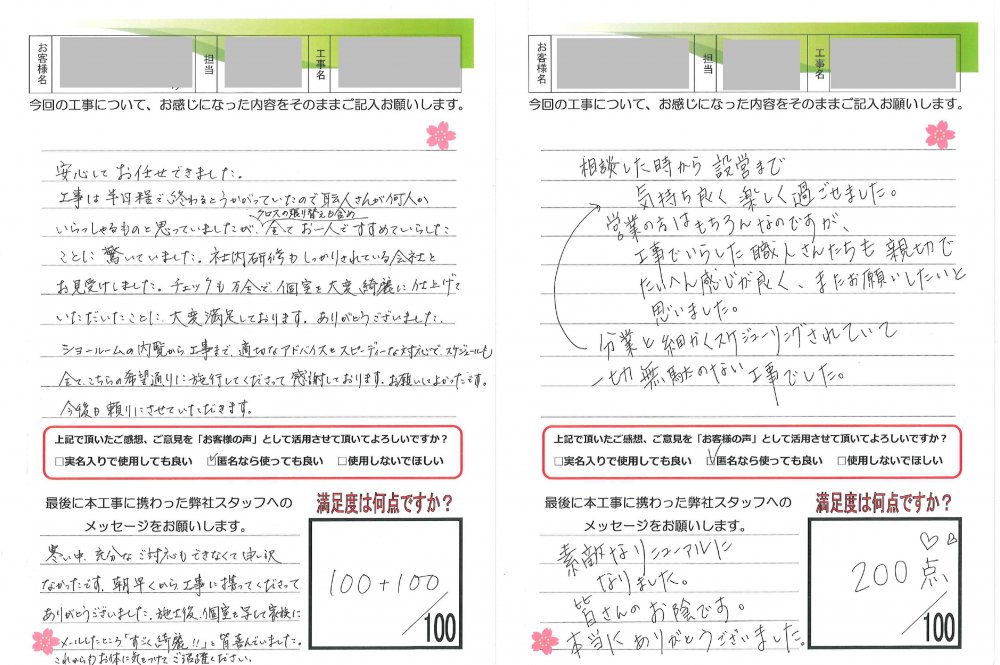 お客様名
担当
工事名
今回の工事について、お感じになった内容をそのままご記入お願いします。
安心して お任せできました。
工事は半日程で終わるとうかがっていたので職人さんが何人か
クロスの張り替えも含め
いらっしゃるものと思っていましたが、全てお一人ですすめていらした
ことに驚いていました。社内研修もしっかりされている会社と
お見受けしました。チェックも万全で、個室を大変綺麗に仕上げて
いただいたことに、大変満足しております。ありがとうございました。
ショールームの内覧から工事まで、適切なアドバイスとスピーディーな対応で、スケジュールも
全て、こちらの希望通りに施行してくださって感謝しております。お願いしてよかったです。
今後日頼りにさせていただきます。
上記で頂いたご感想、ご意見を「お客様の声」として活用させて頂いてよろしいですか？
□実名入りで使用しても良い ☑匿名なら使っても良い □使用しないでほしい
最後に本工事に携わった弊社スタッフへの
メッセージをお願いします。
寒い中、充分なご対応もできなくて申し訳
なかったです。朝早くから工事に携ってくださって
ありがとうございました。施工後、個室を写して家族に
メールしたところ「すごく綺麗!!」と皆喜んでいました。
これからもお体に気をつけてご活躍ください。
満足度は何点ですか？
100+100
/100
お客様名
担当
工事名
今回の工事について、お感じになった内容をそのままご記入お願いします。
相談した時から 設営まで
気持ち良く 楽しく過ごせました。
営業の方はもちろんなのですが、
工事でいらした職人さんたちも親切で
たいへん感じが良く、またお願いしたいと
思いました。
分業と細かくスケジューリングされていて
一切無駄のない工事でした。
上記で頂いたご感想、ご意見を「お客様の声」として活用させて頂いてよろしいですか？
□実名入りで使用しても良い ☑匿名なら使っても良い □使用しないでほしい
最後に本工事に携わった弊社スタッフへの
メッセージをお願いします。
素敵なリニューアルに
なりました。
皆さんのお陰です。
本当にありがとうございました。
満足度は何点ですか？
200点
/100